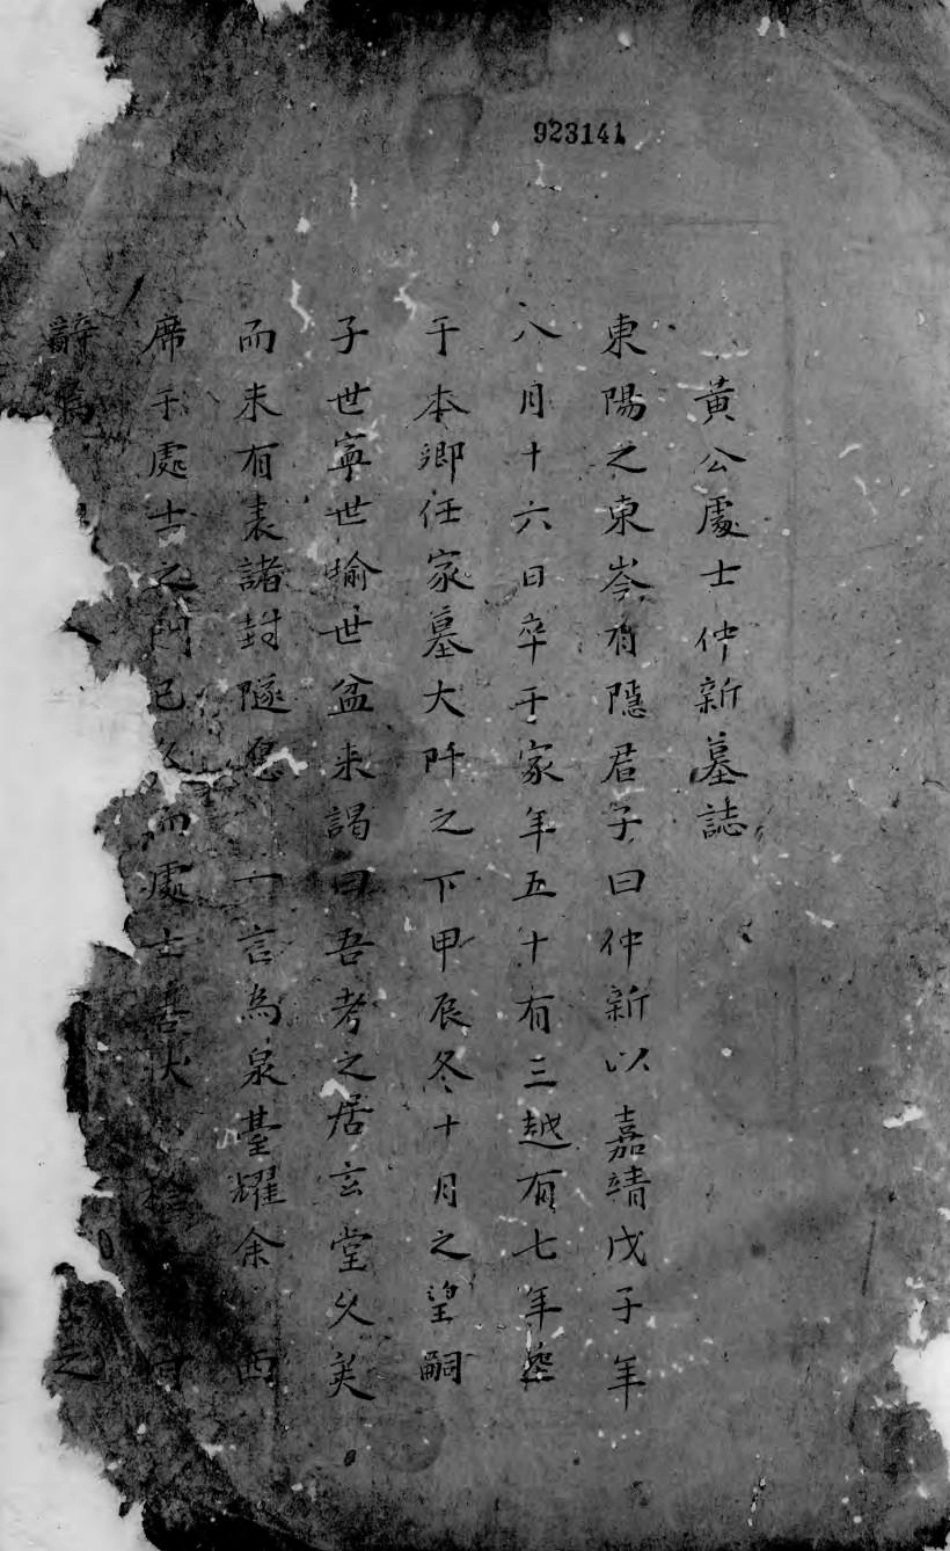 923141
黃公處士仲新墓誌
東陽之東岑有隱君子曰仲新以嘉靖戊子年
八月十六日卒于家年五十有三越有七年塟
于本鄉任家墓大阡之下甲辰冬十月之望嗣
子世寧世掄世盆来謁曰吾考之居玄堂乆美
而未有表諸封隧惡一言為泉臺耀余西
席于處士之門已久而處士
辭為之